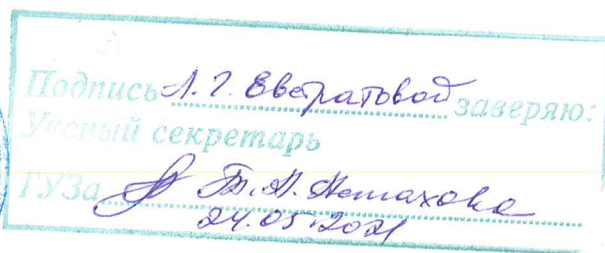 Подпись Л. Г. Евстратовой заверяю:
Ученый секретарь
ГУЗа Т. А.
24.05.2021